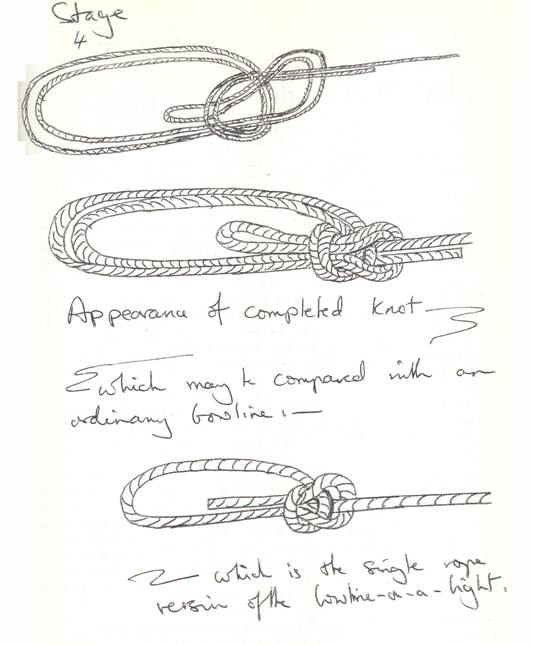 Stage
4
Appearance of completed knot
which may be compared with an
ordinary bowline :—
which is the single rope
version of the bowline-on-a-bight.